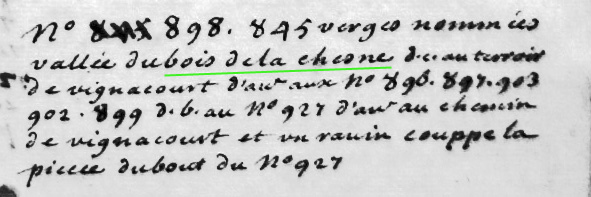 No 898. 845 verges nommées
vallée du bois de la chesne d.c. au terroir
de vignacourt d'au.r aux No 896. 897. 903
902. 899 d.b. au No 927 d'au.r au chemin
de vignacourt et un ravin couppe la
piece du bout du No 927